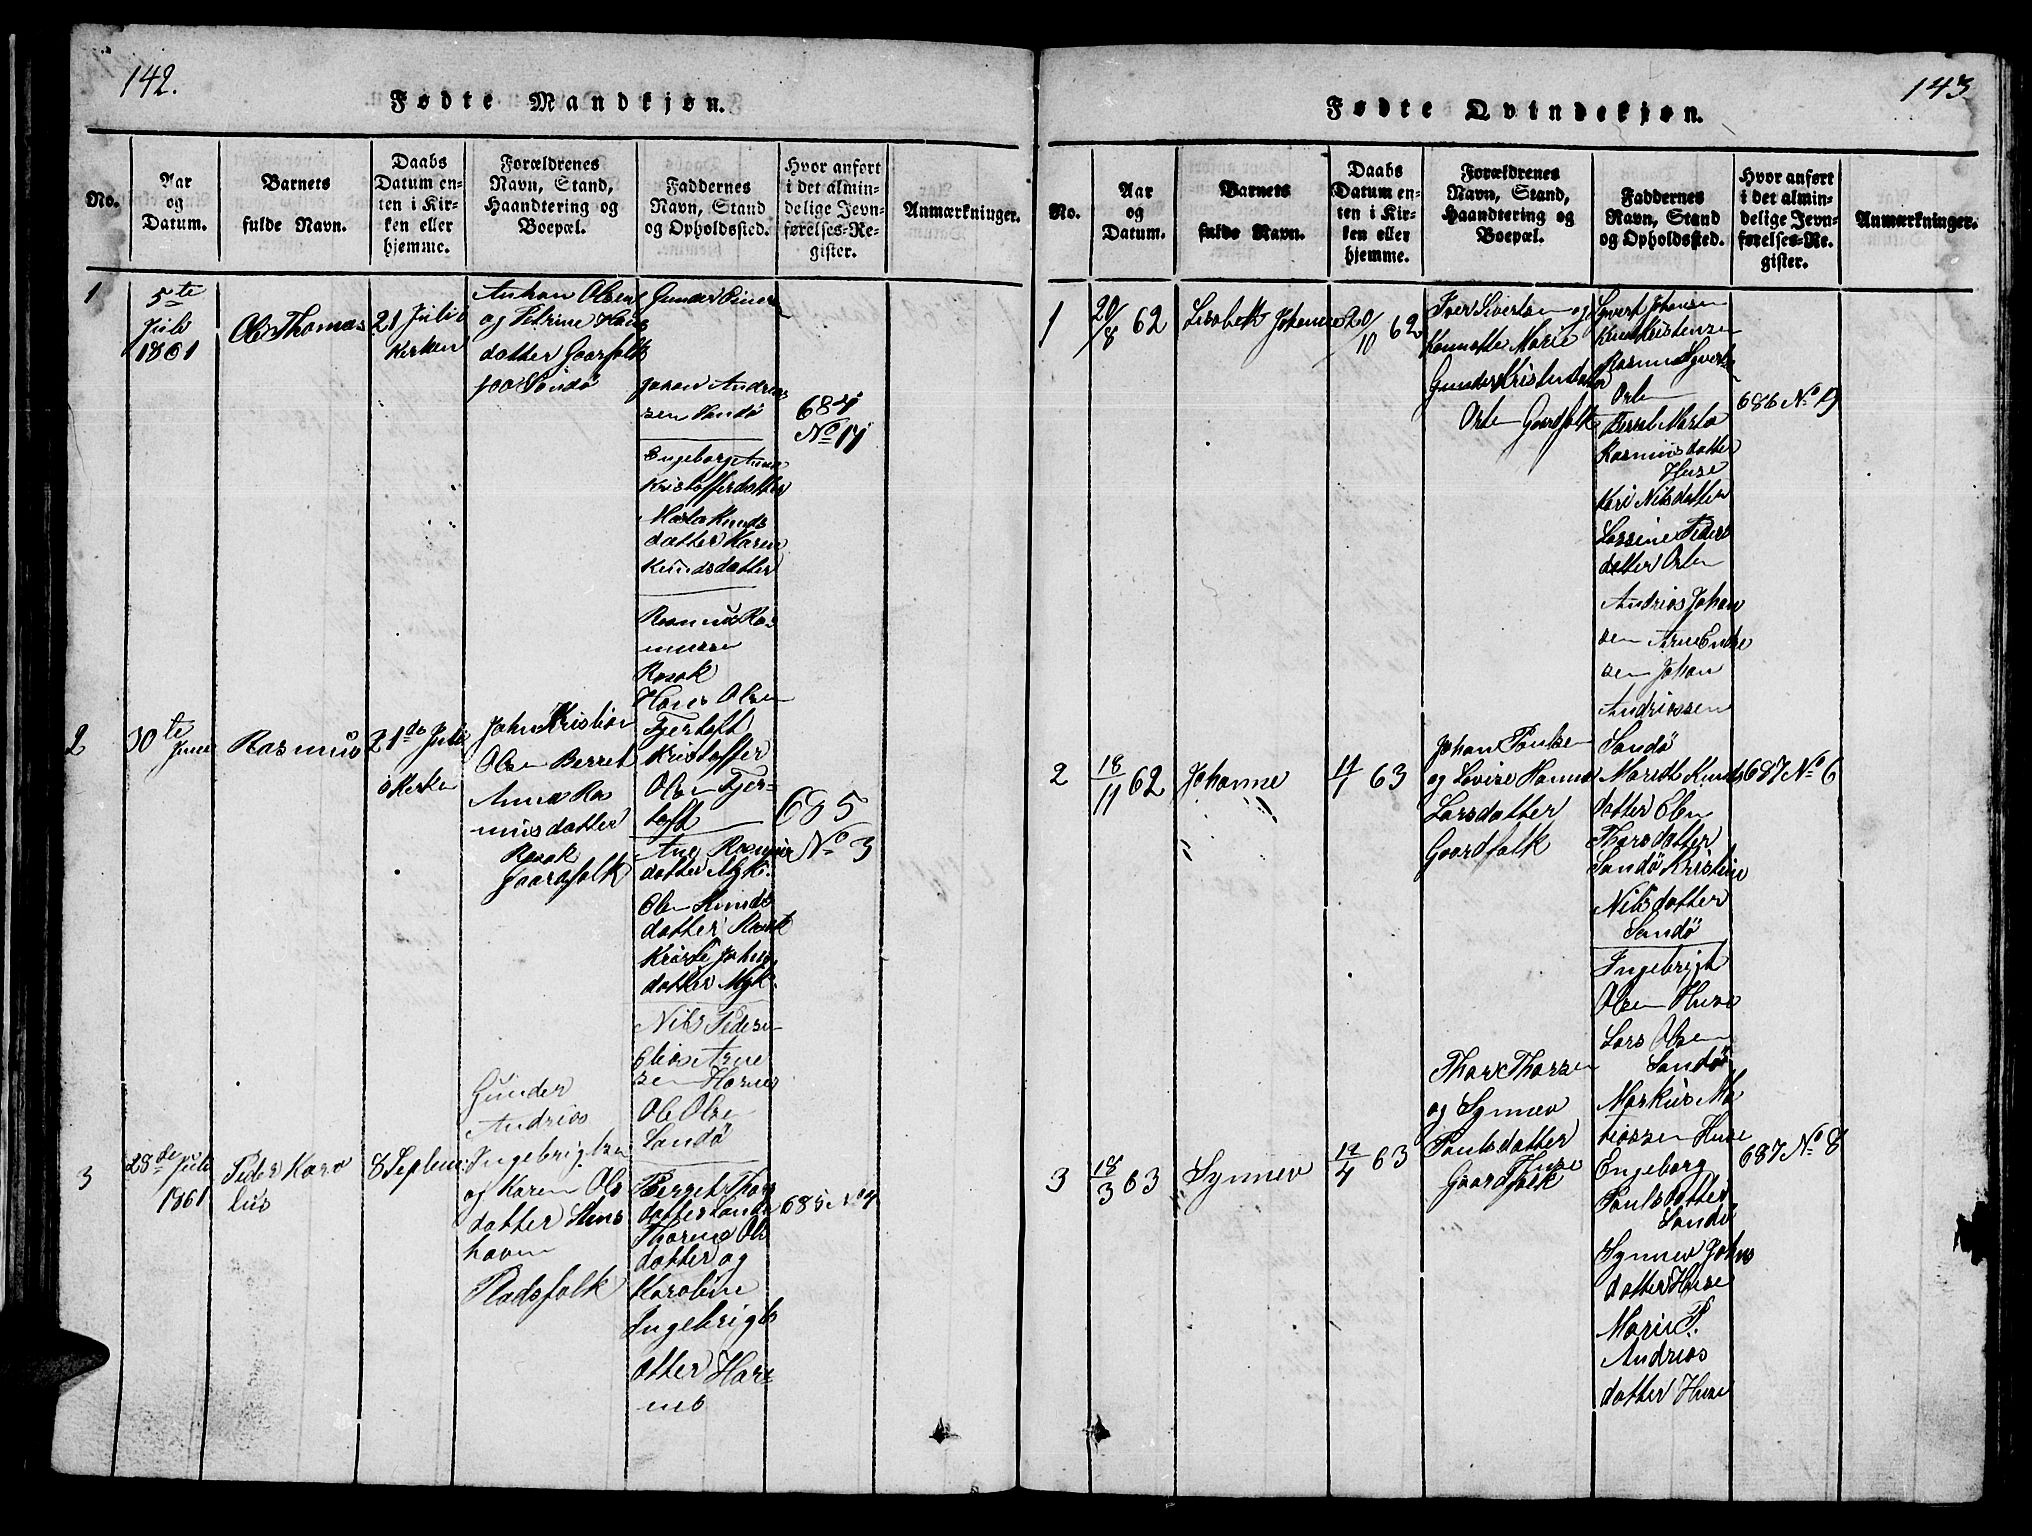 142.
Fødte Mandkjøn.
No.
Aar
og
Datum.
Barnets
fulde Navn.
Daabs
Datum en-
ten i Kir-
ken eller
hjemme.
Forældrenes
Navn, Stand,
Haandtering og
Boepæl.
Faddernes
Navn, Stand
og Opholdssted.
Hvor anført
i det almin-
delige Jevn-
førelses-Re-
gister.
Anmærkninger.
1
5te
Juli
1861
Ole Thomas
21 Juli
Kirken
Anton Olsen
og Petrine Hans
datter Gaarfolk
paa Sandø
Gunder
Johan Andreas
sen Sandø
Ingeborg Anne
Kristofferdatter
Marta Knuds
datter Karen
Knudsdatter
Rasmus Ras
mussen
Rosok
684
No 17
2
30te
Juni
Rasmus
21de Juli
i Kirken
John Kristian
Olsen Berret
Anna Ras
musdatter
Rosok
Gaardfolk
Hans Olsen
Fjertoft
Kristoffer
Olsen Fjer-
toft
Ane Rasmus
datter Myk.
Olen Knuds
datter Rosok
Kristi Johans
datter Myk.
Nils Peders
685
No 3
3
28de Juli
1861
Peder Karo
lius
8 Septem
Gunder
Andrias
Ingebrigtsen
og Karen Ols
datter Stens
havn
Pladsfolk
Elias Arne
sen Harnes
Ole Olsen
Sandø
Berget Thors
datter Sandø
Thorine Ols
datter og
Karoline
Ingebrigts
datter Har-
nes
685 No 4
143
Fødte Qvindekjøn.
No.
Aar
og
Datum.
Barnets
fulde Navn.
Daabs
Datum en-
ten i Kir-
ken eller
hjemme.
Forældrenes
Navn, Stand,
Haandtering og
Boepæl.
Faddernes
Navn, Stand
og Opholdssted.
Hvor anført
i det almin-
delige Jevn-
førelses-Re-
gister.
Anmærkninger.
1
20/8 62
Lisabeth Johanne
20/10 62
Iver Sivertsen og
Marie
Gunder Kristensdatter
Orten Gaardfolk
Syvert Johansen
Knut Kristensen
Rasmus Syverts
Orten
Berret Marta
Rasmusdatter
Huse
Kari Nilsdatter
Lassine Peders
datter Orten
Andrias Johan
sen Arne Endre
sen Johan
Andriassen
Sandø
686 No 19
2
18/11 62
Johanne
63
Johan Paulsen
og Lovise Hanna
Larsdatter
Gaardfolk
Marith Knuds
datter Olen
Thorsdatter
Sandø Kristine
Nilsdatter
Sandø
Ingebrigt
Olsen Huse
Lars Olsen
Sandø
687 No 6
3
18/3 63
Synnev
12/4 63
Thore Thorsen
og Synnev
Paulsdatter
Huse
Gaardfolk
Markus Ma
tiassen Huse
Engeborg
Paulsdatter
Sandø
Synnev Johns
datter Huse
Marie P.
Andrias
datter Huse
687 No 8